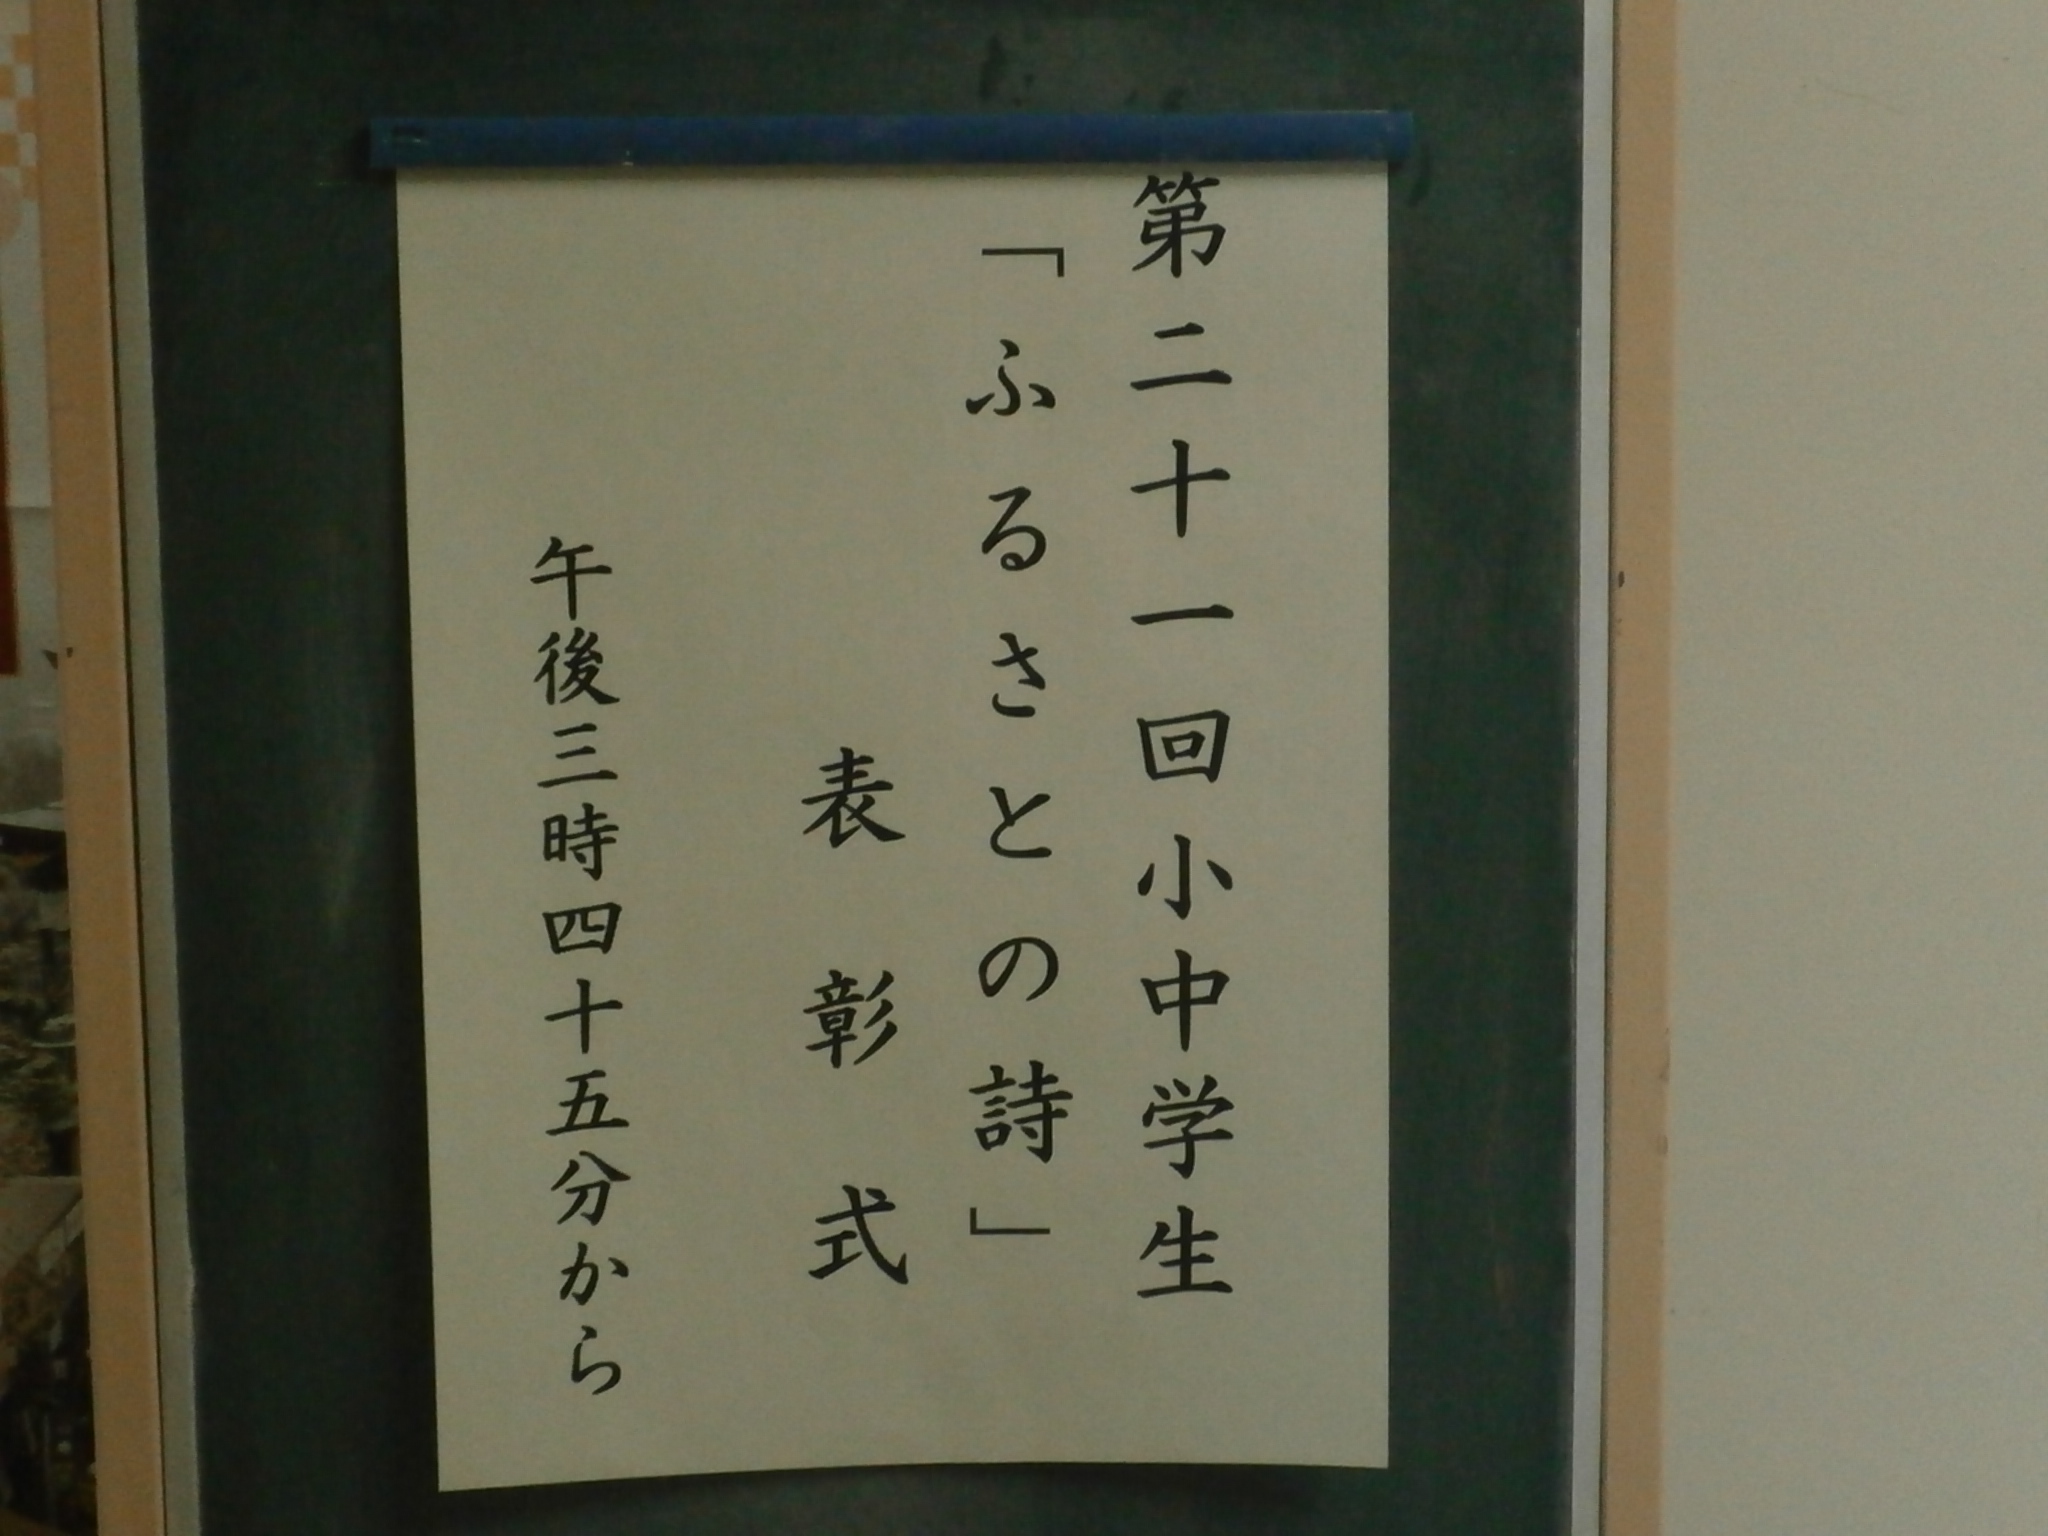 第二十一回小中学生
「ふるさとの詩」
表彰式
午後三時四十五分から